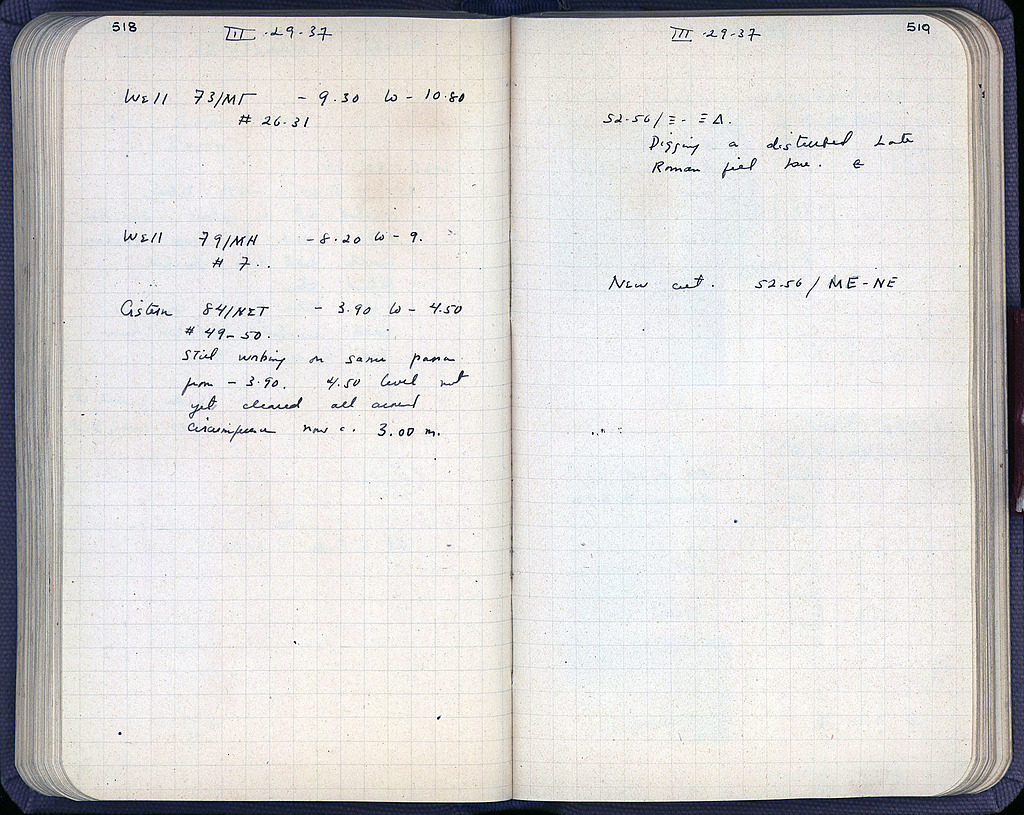 518
III · 29 · 37
Well 73/ΜΓ - 9.30 to - 10.80
# 26-31
Well 79/ΜΗ - 8.20 to - 9.
# 7..
Cistern 84/ΝΣΤ - 3.90 to - 4.50
# 49-50.
Still working on same
from - 3.90. 4.50 level not
yet cleared all around
now c. 3.00 m.
519
III · 29 · 37
52-56/Ξ - ΞΔ.
Digging a disturbed Late
Roman fill here.
New cut. 52-56/ΜΕ-ΝΕ